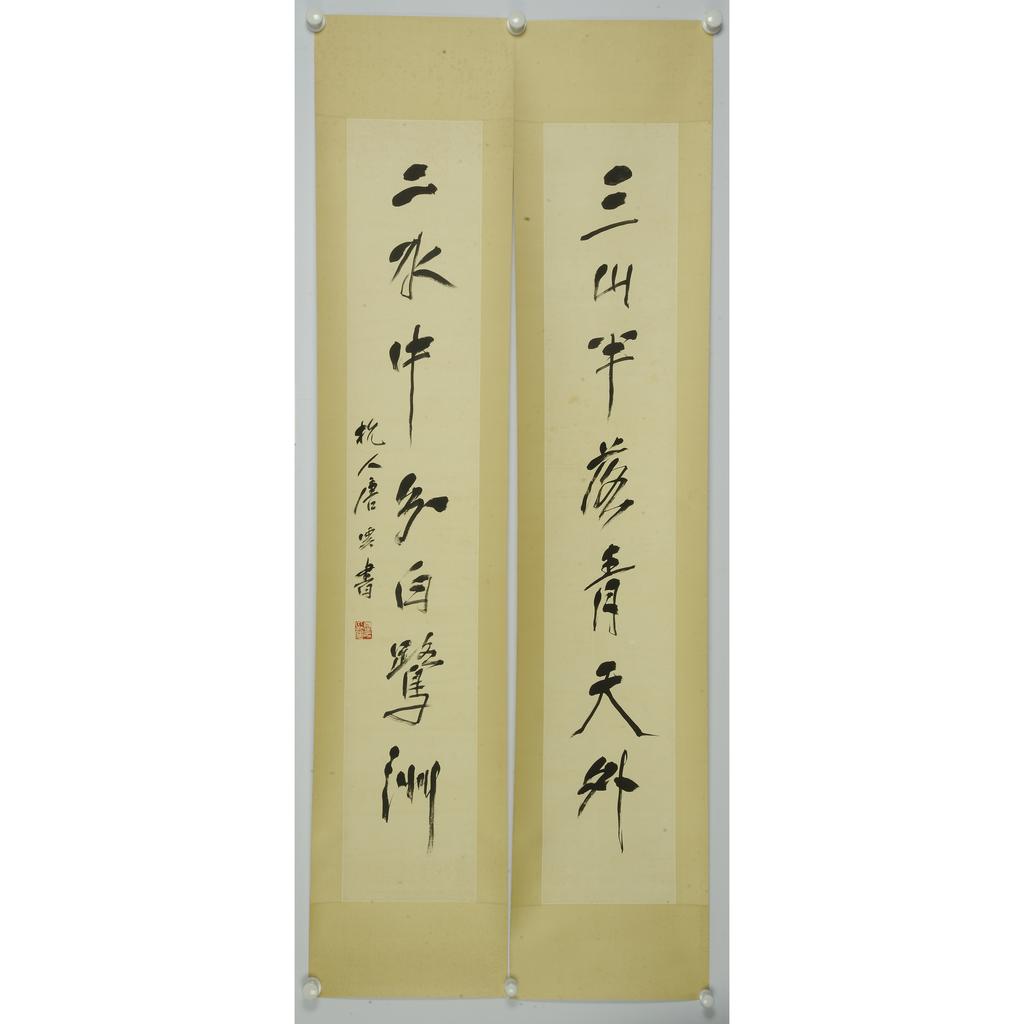 三山半落青天外
二水中分白鷺洲
杭人唐雲書